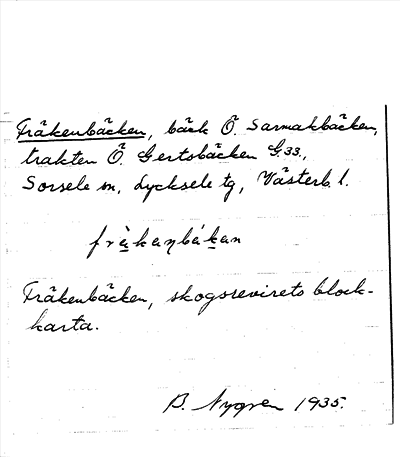 Fräkenbäcken, bäck Ö. Sarmakbäcken,
trakten Ö. Gertsbäcken G.33.,
Sorsele sn, Lycksele tg, Västerb. l.
fràkaŋbákan
Fräkenbäcken, skogsrevirets block-
karta.
B. Nygren 1935.